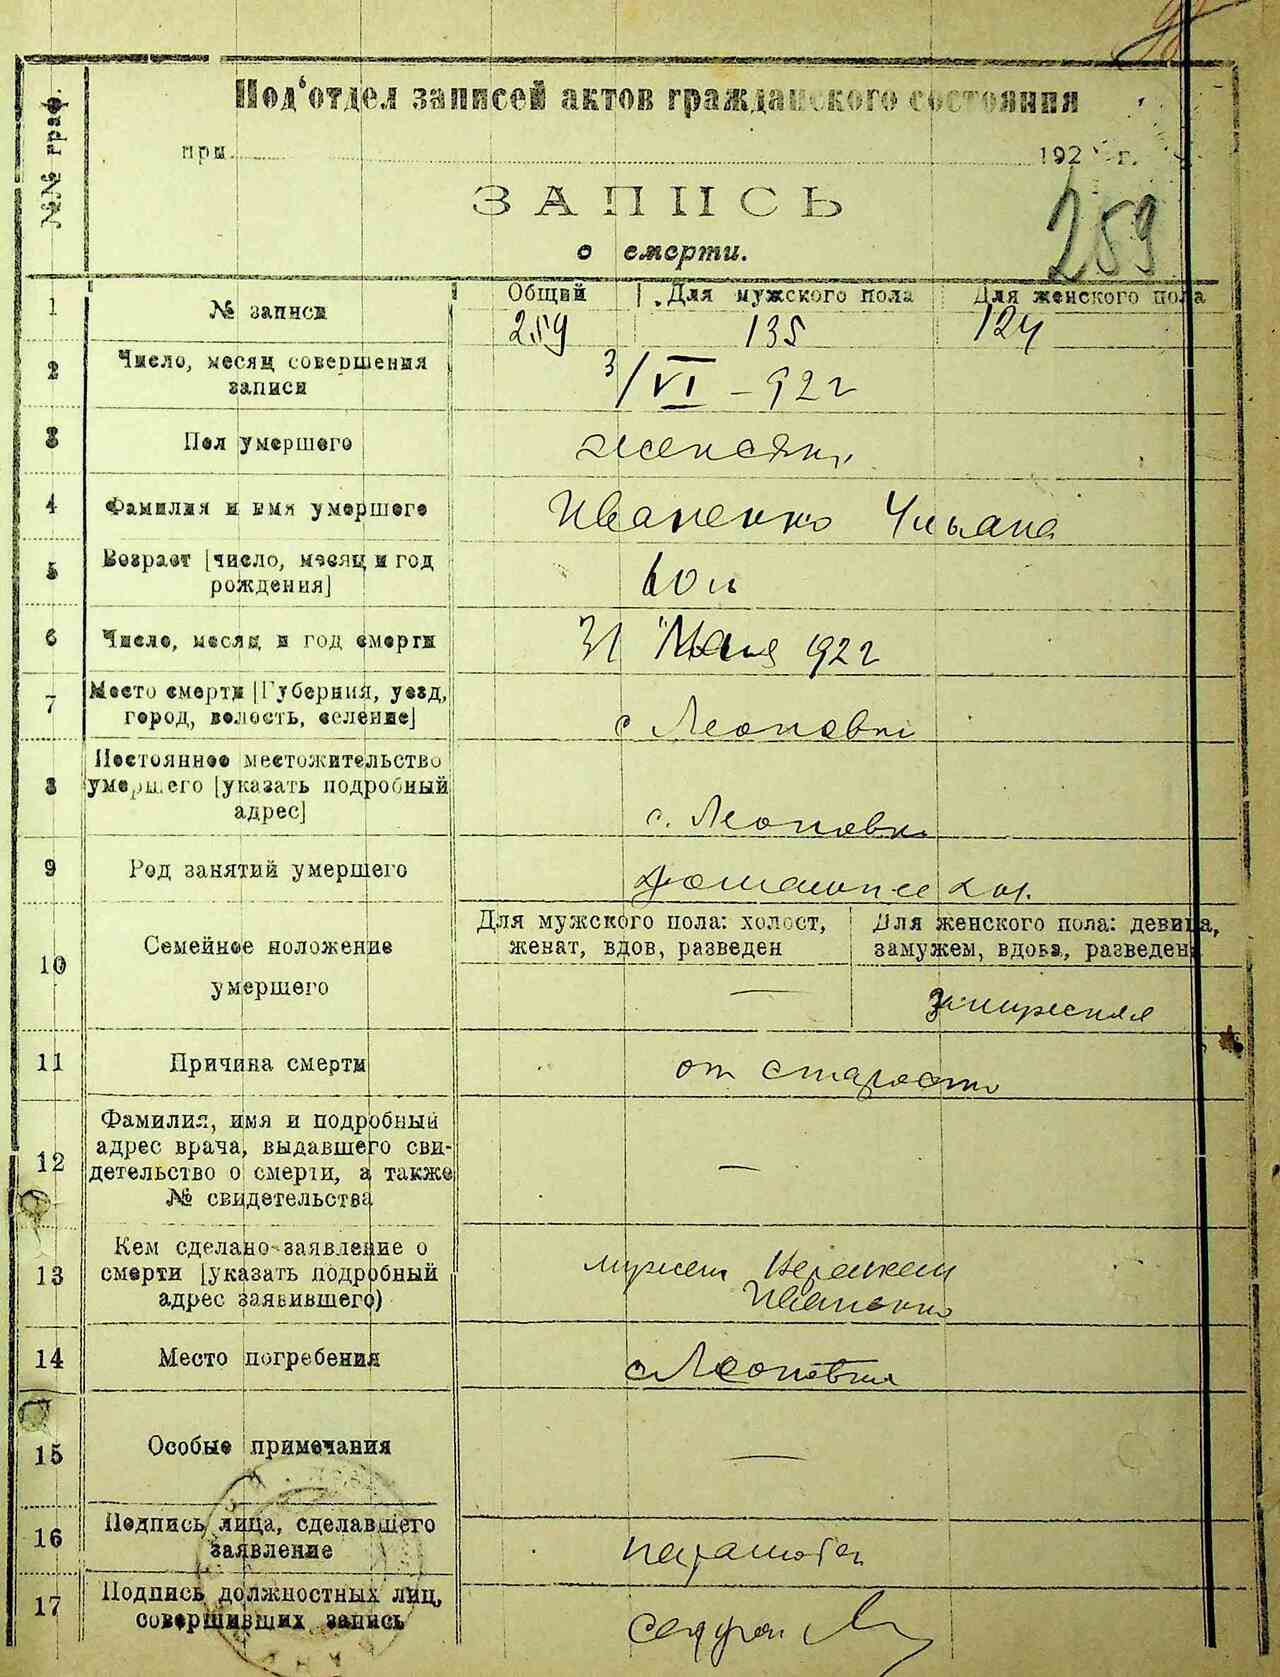 №№ граф.
Под‘отдел записей актов гражданского состояния
при 192 г.
ЗАПИСЬ
о смерти.
259
1 № записи
Общий Для мужского пола Для женского пола
259 135 124
2 Число, месяц совершения
записи
3/VI – 922
3 Пол умершего
4 Фамилия и имя умершего
Иваненко Ульяна
5 Возраст [число, месяц и год
рождения]
60 л
6 Число, месяц и год смерти
31 Мая 1922
7 Место смерти [Губерния, уезд,
город, волость, селение]
с Леоновки
8 Постоянное местожительство
умершего [указать подробный
адрес]
с. Леоновки
9 Род занятий умершего
Домашнее хоз.
10 Семейное положение
умершего
Для мужского пола: холост,
женат, вдов, разведен
Для женского пола: девица,
замужем, вдова, разведена
—
замужняя
11 Причина смерти
от старости
12 Фамилия, имя и подробный
адрес врача, выдавшего сви-
детельство о смерти, а также
№ свидетельства
—
13 Кем сделано заявление о
смерти [указать подробный
адрес заявившего)
мужем
Иваненко
14 Место погребения
с Леоновка
15 Особые примечания
—
16 Подпись лица, сделавшего
заявление
17 Подпись должностных лиц,
совершивших запись